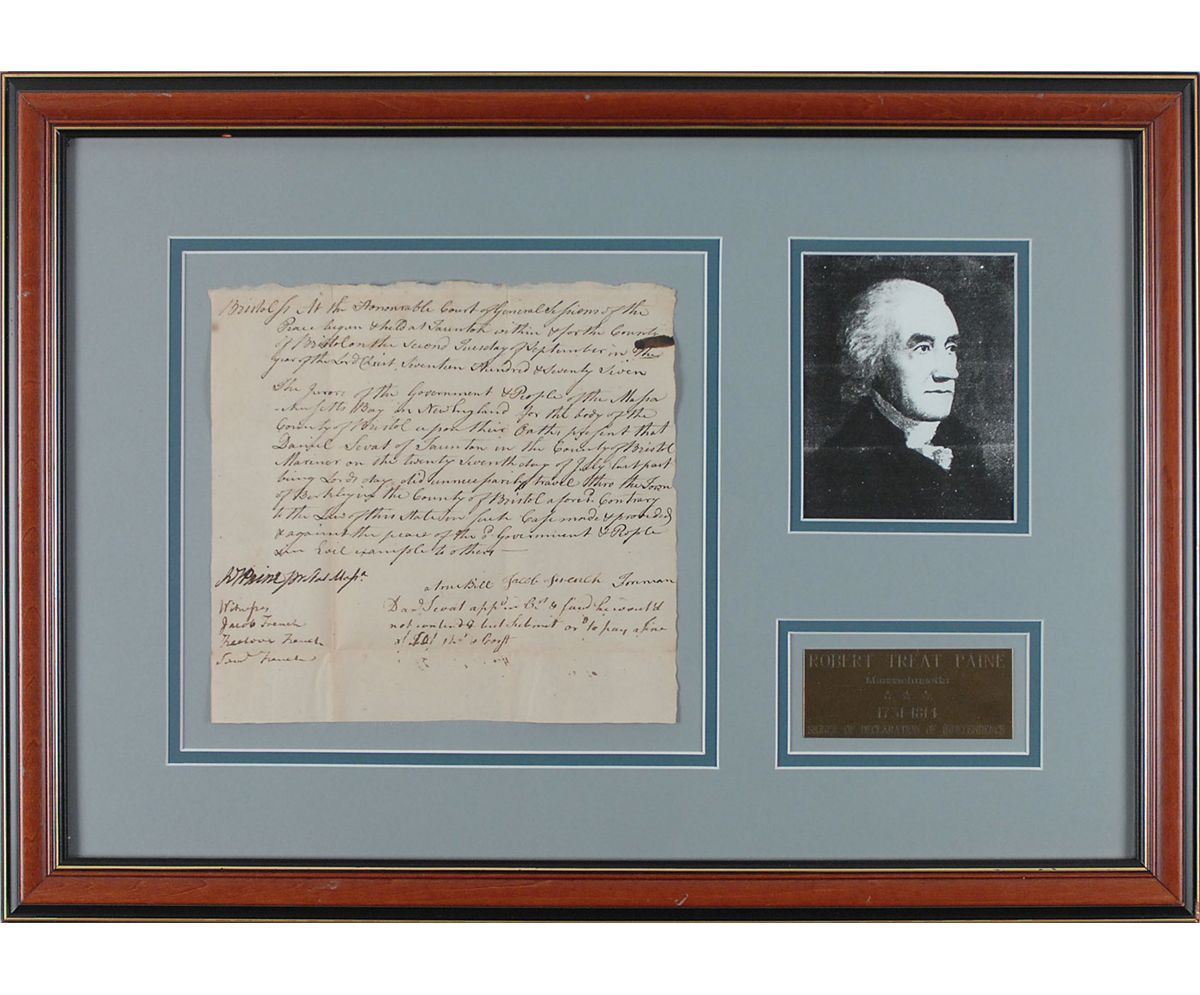 Bristol ss At the Honourable Court of General Sessions of the
Peace began & held at Taunton within & for the County
of Bristol on the Second Tuesday of September in the
Year of the Lord Christ, Seventeen Hundred & Seventy Seven
The Jurors of the Government & People of the Massa
chusetts Bay in New England for the body of the
County of Bristol upon their Oaths present that
Daniel Sevat of Taunton in the County of Bristol
Mariner on the twenty Seventh day of July last past
being Lords day, did unnecessarily travel thro the Town
of Berkley in the County of Bristol afores.d Contrary
to the Law of this State in such Case made & provided
& against the peace of the s.d Government & People
& in Evil example to others
RTPaine for the
a true Bill Jacob Foreman
Witnesses
Jacob French
French
French
Dan.l Sevat app.d in C.t & said he would
not contend & but Submit or.d to pay a fine
Cost
ROBERT TREAT PAINE
Massachusetts
☆ ☆ ☆
1731-1814
SIGNER OF DECLARATION OF INDEPENDENCE